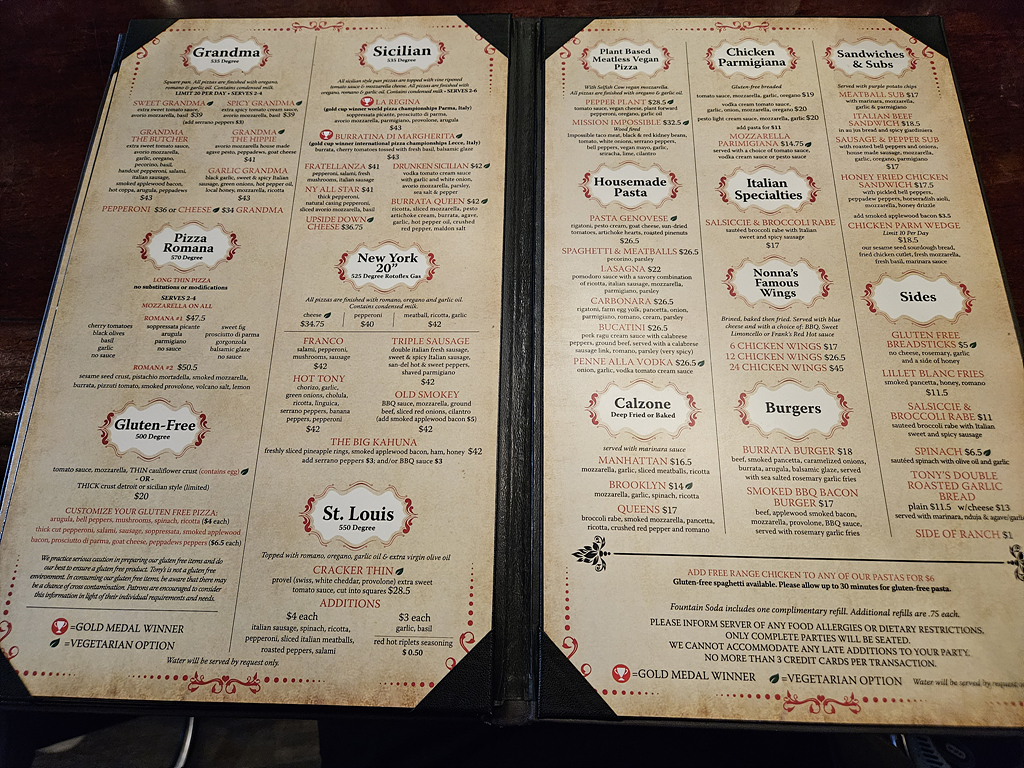 Grandma
535 Degree
Square pan. All pizzas are finished with oregano,
romano & garlic oil. Contains condensed milk.
LIMIT 20 PER DAY - SERVES 2-4
SWEET GRANDMA
extra sweet tomato sauce,
avorio mozzarella, basil $39
SPICY GRANDMA
extra spicy tomato sauce,
avorio mozzarella, basil $39
(add serrano peppers $3)
GRANDMA
THE BUTCHER
extra sweet tomato sauce
avorio mozzarella,
garlic, oregano,
pecorino, basil,
handcut pepperoni, salami,
italian sausage,
smoked applewood bacon,
hot coppa, arugula, peppadews
$43
GRANDMA
THE HIPPIE
avorio mozzarella house made
agave pesto, peppadews, goat cheese
$41
GARLIC GRANDMA
black garlic, sweet & spicy Italian
sausage, green onions, hot pepper oil,
local honey, mozzarella, ricotta
$43
PEPPERONI $36 or CHEESE $34 GRANDMA
Pizza
Romana
570 Degree
LONG THIN PIZZA
no substitutions or modifications
SERVES 2-4
MOZZARELLA ON ALL
ROMANA #1 $47.5
cherry tomatoes
black olives
basil
garlic
no sauce
soppressata picante
arugula
parmigiano
no sauce
sweet fig
prosciutto di parma
gorgonzola
balsamic glaze
no sauce
ROMANA #2 $50.5
sesame seed crust, pistachio mortadella, smoked mozzarella,
burrata, pizzuti tomato, smoked provolone, volcano salt, lemon
Gluten-Free
500 Degree
tomato sauce, mozzarella, THIN cauliflower crust (contains egg)
- OR -
THICK crust detroit or sicilian style (limited)
$20
CUSTOMIZE YOUR GLUTEN FREE PIZZA:
arugula, bell peppers, mushrooms, spinach, ricotta ($4 each)
thick cut pepperoni, salami, sausage, soppressata, smoked applewood
bacon, prosciutto di parma, goat cheese, peppadews peppers ($6.5 each)
We practice serious caution in preparing our gluten free items and do
our best to ensure a gluten free product. Tony's is not a gluten free
environment. In consuming our gluten free items, be aware that there may
be a chance of cross contamination. Patrons are encouraged to consider
this information in light of their individual requirements and needs.
=GOLD MEDAL WINNER
=VEGETARIAN OPTION
Sicilian
535 Degree
All sicilian style pan pizzas are topped with vine ripened
tomato sauce & mozzarella cheese. All pizzas are finished with
oregano, romano & garlic oil. Contains condensed milk - SERVES 2-6
LA REGINA
(gold cup winner world pizza championships Parma, Italy)
soppressata picante, prosciutto di parma,
avorio mozzarella, parmigiano, provolone, arugula
$43
BURRATINA DI MARGHERITA
(gold cup winner international pizza championships Lecce, Italy)
burrata, cherry tomatoes tossed with fresh basil, balsamic glaze
$43
FRATELLANZA $41
pepperoni, salami, fresh
mushrooms, italian sausage
NY ALL STAR $41
thick cut pepperoni,
natural casing pepperoni,
sliced avorio mozzarella, basil
UPSIDE DOWN
CHEESE $36.75
DRUNKEN SICILIAN $42
vodka tomato cream sauce
with garlic and white onion,
avorio mozzarella, parsley,
sea salt & pepper
BURRATA QUEEN $42
ricotta, sliced mozzarella, pesto
artichoke cream, burrata, agave,
garlic, hot pepper oil, crushed
red pepper, maldon salt
New York
20"
525 Degree Rotoflex Gas
All pizzas are finished with romano, oregano and garlic oil.
Contains condensed milk.
cheese
$34.75
pepperoni
$40
meatball, ricotta, garlic
$42
FRANCO
salami, pepperoni,
mushrooms, sausage
$42
TRIPLE SAUSAGE
double italian fresh sausage,
sweet & spicy Italian sausage,
san-del hot & sweet peppers,
shaved parmigiano
$42
HOT TONY
chorizo, garlic,
green onions, cholula,
ricotta, linguica,
serrano peppers, banana
peppers, pepperoni
$42
OLD SMOKEY
BBQ sauce, mozzarella, ground
beef, sliced red onions, cilantro
(add smoked applewood bacon $5)
$42
THE BIG KAHUNA
freshly sliced pineapple rings, smoked applewood bacon, ham, honey $42
add serrano peppers $3; and/or BBQ sauce $3
St. Louis
550 Degree
Topped with romano, oregano, garlic oil & extra virgin olive oil
CRACKER THIN
provel (swiss, white cheddar, provolone) extra sweet
tomato sauce, cut into squares $28.5
ADDITIONS
$4 each
italian sausage, spinach, ricotta,
pepperoni, sliced italian meatballs,
roasted peppers, salami
$3 each
garlic, basil
red hot riplets seasoning
$ 0.50
Water will be served by request only.
Plant Based
Meatless Vegan
Pizza
With Selfish Cow vegan mozzarella.
All pizzas are finished with oregano & garlic oil.
PEPPER PLANT $28.5
tomato sauce, vegan cheese, plant forward
pepperoni, oregano
MISSION IMPOSSIBLE $32.5
Wood fired
Impossible taco meat, black & red kidney beans,
tomato, white onions, serrano peppers,
bell peppers, vegan mayo, garlic,
sriracha, lime, cilantro
Housemade
Pasta
PASTA GENOVESE
rigatoni, pesto cream, goat cheese, sun-dried
tomatoes, artichoke hearts, roasted pinenuts
$26.5
SPAGHETTI & MEATBALLS $26.5
pecorino, parsley
LASAGNA $22
pomodoro sauce with a savory combination
of ricotta, italian sausage, mozzarella,
parmigiano, parsley
CARBONARA $26.5
rigatoni, farm egg yolk, pancetta, onion,
parmigiano, romano, cream, parsley
BUCATINI $26.5
pork neck gravy sauce with calabrese
peppers, ground beef, served with a calabrese
sausage link, romano, parsley (very spicy)
PENNE ALLA VODKA $26.5
onion, garlic, vodka tomato cream sauce
Calzone
Deep Fried or Baked
served with marinara sauce
MANHATTAN $16.5
mozzarella, garlic, sliced meatballs, ricotta
BROOKLYN $14
mozzarella, garlic, spinach, ricotta
QUEENS $17
broccoli rabe, smoked mozzarella, pancetta,
ricotta, crushed red pepper and romano
Chicken
Parmigiana
Gluten-free breaded
tomato sauce, mozzarella, garlic, oregano $19
vodka cream tomato sauce,
garlic, onion, mozzarella, oregano $20
pesto light cream sauce, mozzarella, garlic $20
add pasta for $11
MOZZARELLA
PARIMIGIANA $14.75
served with a choice of tomato sauce,
vodka cream sauce or pesto sauce
Italian
Specialties
SALSICCIE & BROCCOLI RABE
sautéed broccoli rabe with Italian
sweet and spicy sausage
$17
Nonna's
Famous
Wings
Brined, baked then fried. Served with blue
cheese and with a choice of: BBQ, Sweet
Limoncello or Frank's Red Hot sauce
6 CHICKEN WINGS $17
12 CHICKEN WINGS $26.5
24 CHICKEN WINGS $45
Burgers
BURRATA BURGER $18
beef, smoked pancetta, caramelized onions,
burrata, arugula, balsamic glaze, served
with sea salted rosemary garlic fries
SMOKED BBQ BACON
BURGER $17
beef, applewood smoked bacon,
mozzarella, provolone, BBQ sauce,
served with rosemary garlic fries
Sandwiches
& Subs
Served with purple potato chips
MEATBALL SUB $17
with marinara, mozzarella,
garlic & parmigiano
ITALIAN BEEF
SANDWICH $18.5
in au jus bread and spicy giardiniera
SAUSAGE & PEPPER SUB
with roasted bell peppers and onions,
house made sausage, mozzarella,
garlic, oregano, parmigiano
$17
HONEY FRIED CHICKEN
SANDWICH $17.5
with pickled bell peppers,
peppadew peppers, horseradish aioli,
mozzarella, honey drizzle
add smoked applewood bacon $3.5
CHICKEN PARM WEDGE
Limit 10 Per Day
$18.5
our sesame seed sourdough bread,
fried chicken cutlet, fresh mozzarella,
fresh basil, marinara sauce
Sides
GLUTEN FREE
BREADSTICKS $5
no cheese, rosemary, garlic
and a side of honey
LILLET BLANC FRIES
smoked pancetta, honey, romano
$11.5
SALSICCIE &
BROCCOLI RABE $11
sauteed broccoli rabe with Italian
sweet and spicy sausage
SPINACH $6.5
sautéed spinach with olive oil and garlic
TONY'S DOUBLE
ROASTED GARLIC
BREAD
plain $11.5 w/cheese $13
served with marinara, nduja & agave/garlic
SIDE OF RANCH $1
ADD FREE RANGE CHICKEN TO ANY OF OUR PASTAS FOR $6
Gluten-free spaghetti available. Please allow up to 30 minutes for gluten-free pasta.
Fountain Soda includes one complimentary refill. Additional refills are .75 each.
PLEASE INFORM SERVER OF ANY FOOD ALLERGIES OR DIETARY RESTRICTIONS.
ONLY COMPLETE PARTIES WILL BE SEATED.
WE CANNOT ACCOMMODATE ANY LATE ADDITIONS TO YOUR PARTY.
NO MORE THAN 3 CREDIT CARDS PER TRANSACTION.
=GOLD MEDAL WINNER =VEGETARIAN OPTION Water will be served by request